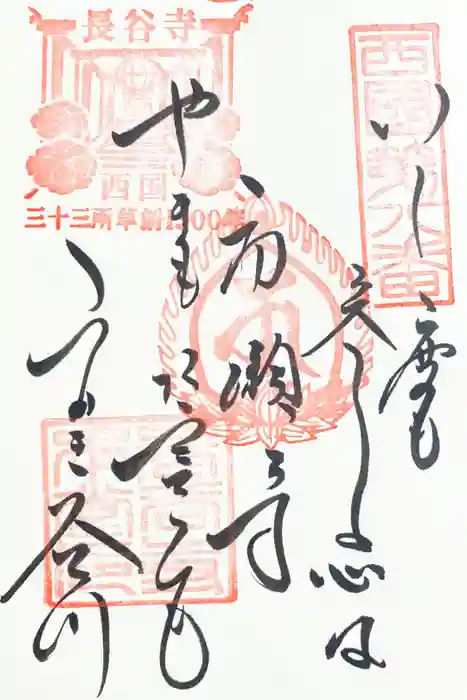 西国第八番
いく度も
参る心は
初瀬寺
やまも
ふかき谷川
長谷寺
西国
三十三所草創1300年